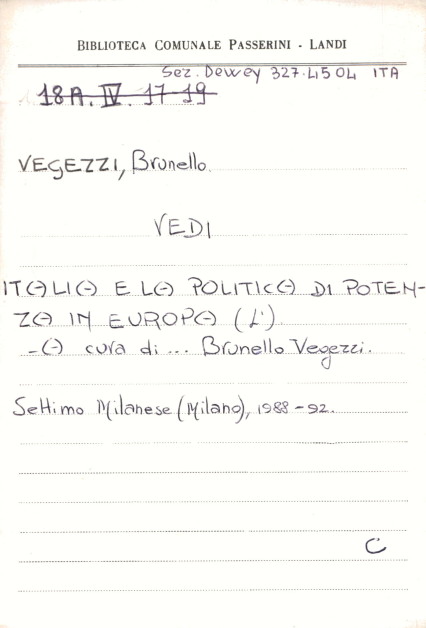 BIBLIOTECA COMUNALE PASSERINI - LANDI
Sez. Dewey 327.4504 ITA
18A. IV. 17-19
VEGEZZI, Brunello.
VEDI
ITALIA E LA POLITICA DI POTEN-
ZA IN EUROPA (L').
- A cura di ... Brunello Vegezzi.
Settimo Milanese (Milano), 1988-92.
C